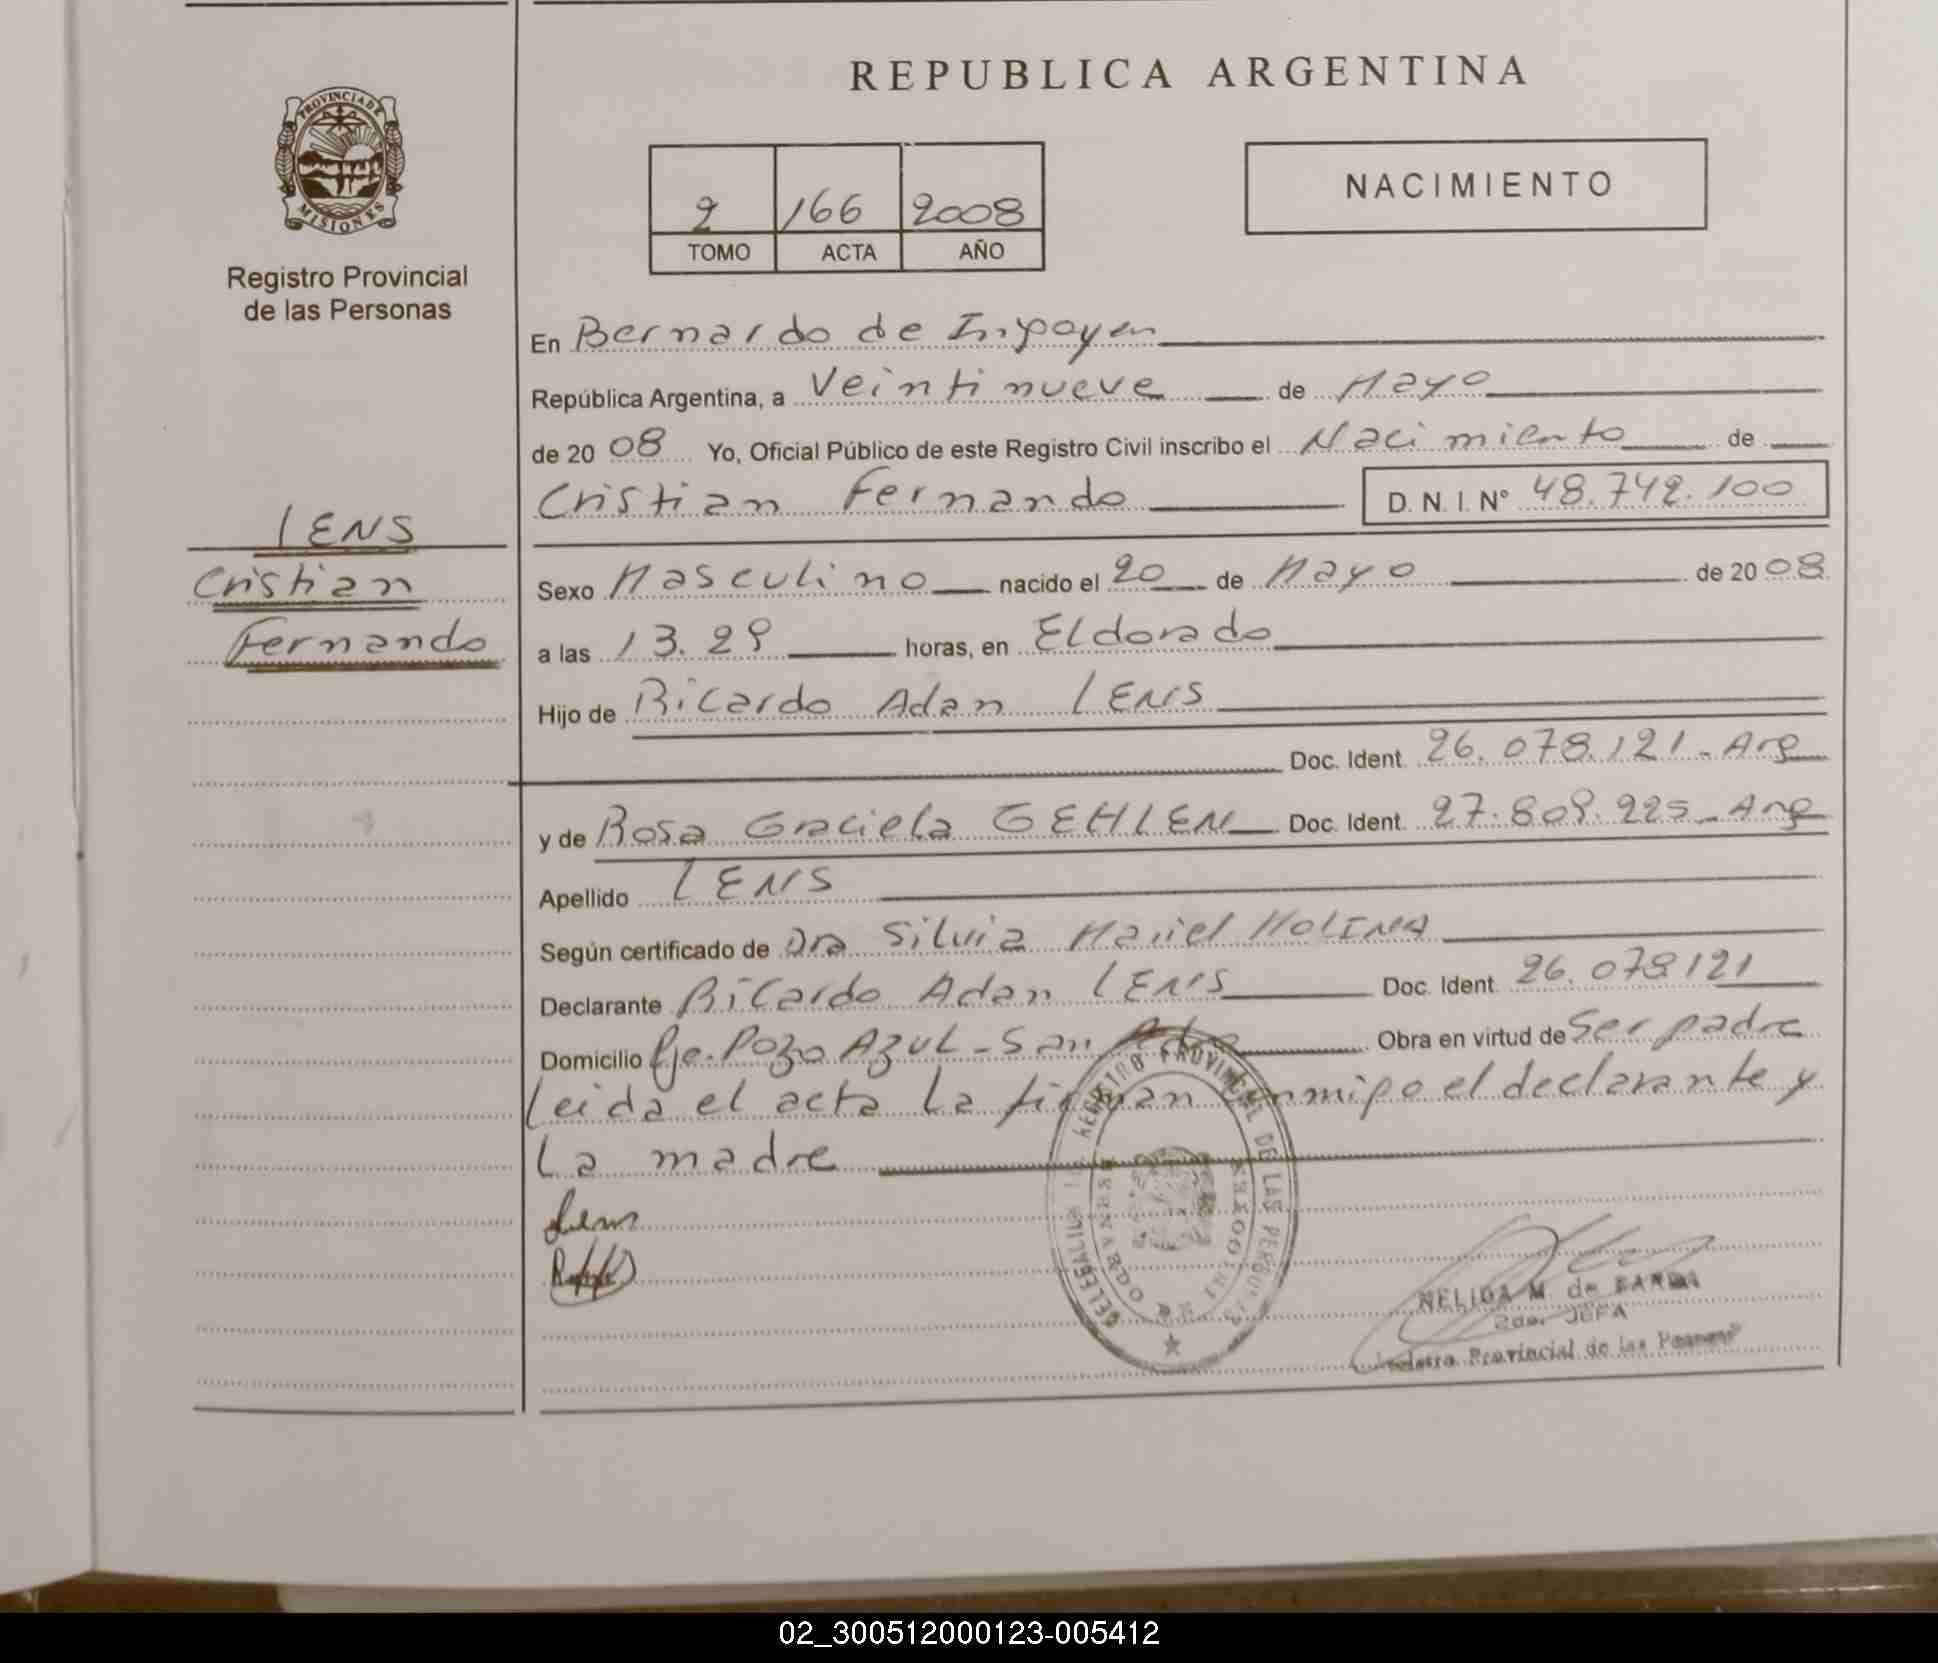 REPUBLICA ARGENTINA
PROVINCIA DE
MISIONES
Registro Provincial
de las Personas
2 166 2008
TOMO ACTA AÑO
NACIMIENTO
En Bernardo de Irigoyen
República Argentina, a Veintinueve de Mayo
de 2008 Yo, Oficial Público de este Registro Civil inscribo el Nacimiento de
Cristian Fernando D. N. I. N° 48.742.100
LENS
Cristian
Fernando
Sexo Masculino nacido el 20 de Mayo de 2008
a las 13.29 horas, en Eldorado
Hijo de Ricardo Adan LENS
Doc. Ident. 26.078.121 - Arg
y de Rosa Graciela GEHLEN Doc. Ident. 27.809.225 - Arg
Apellido LENS
Según certificado de Dra Silvia Mariel MOLINA
Declarante Ricardo Adan LENS Doc. Ident. 26.078121
Domicilio Pje. Pozo Azul - San Pedro Obra en virtud de Ser padre
Leida el acta La firman conmigo el declarante y
La madre
Lens
REGISTRO PROVINCIAL DE LAS PERSONAS
BERNARDO IRIGOYEN
NELIDA M. de
2da. JEFA
Provincial de las Personas
02_300512000123-005412